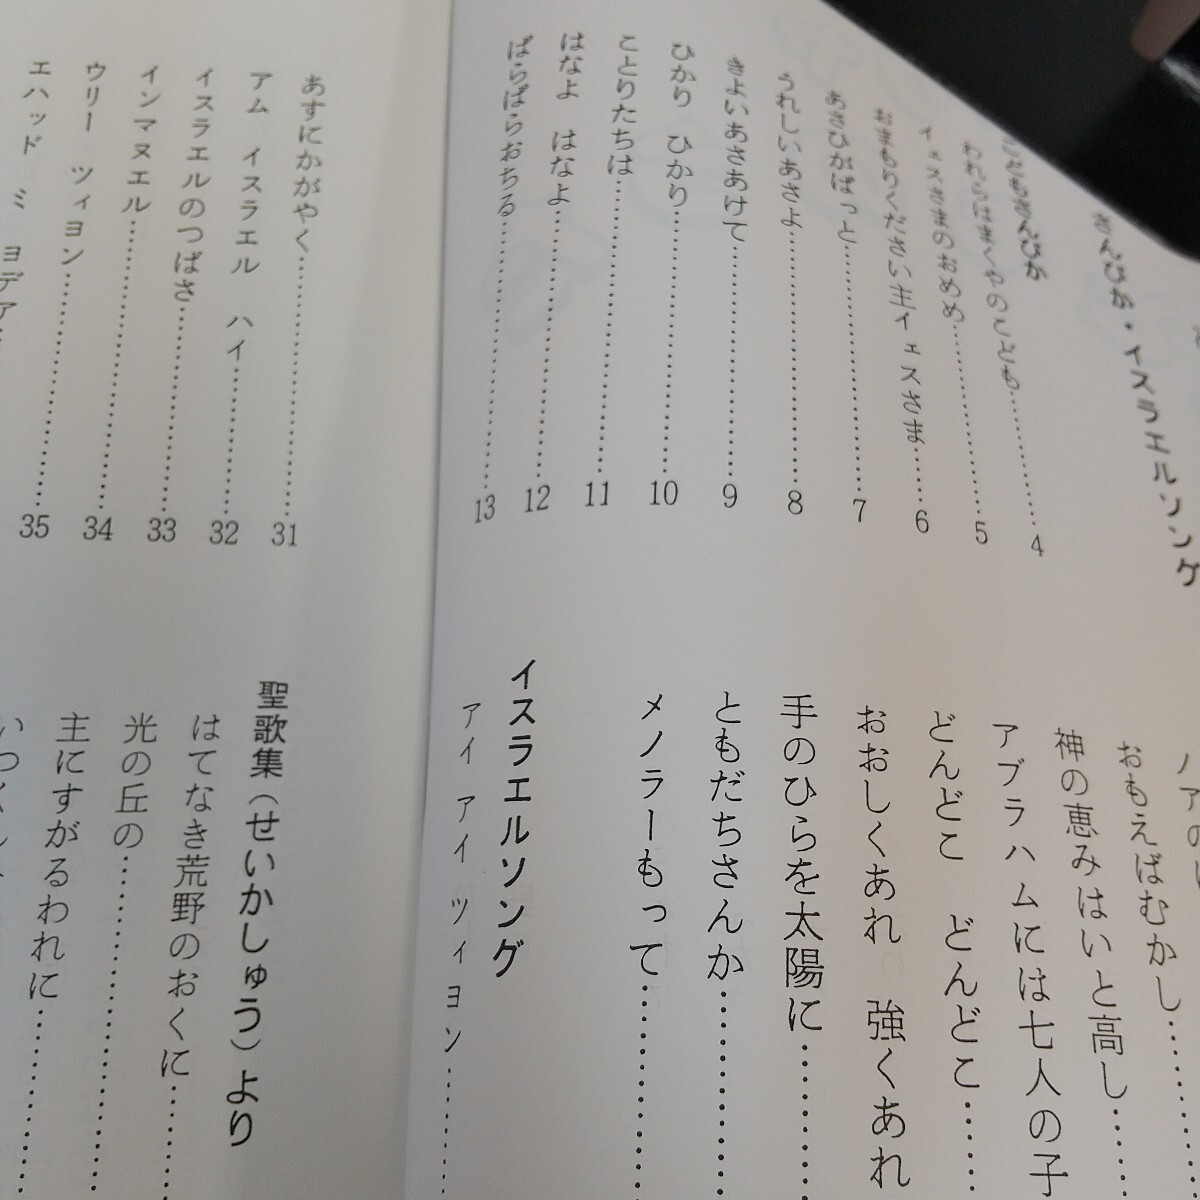 さんびか・イスラエルソング
こどもさんびか
われらはまくやのこども…………4
イエスさまのおめめ…………5
おまもりください主イエスさま……6
あさひがぱっと…………7
うれしいあさよ…………8
きよいあさあけて…………9
ひかり ひかり…………10
ことりたちは…………11
はなよ はなよ…………12
ぱらぱらおちる…………13
おもえばむかし…………
神の恵みはいと高し……
アブラハムには七人の子
どんどこ どんどこ……
おおしくあれ 強くあれ
手のひらを太陽に…………
ともだちさんか…………
メノラーもって…………
イスラエルソング
アイ アイ ツィヨン…………
あすにかがやく…………31
アム イスラエル ハイ…………32
イスラエルのつばさ…………33
インマヌエル…………34
ウリー ツィヨン…………35
エハッド ミ ヨデア
聖歌集（せいかしゅう）より
はてなき荒野のおくに……
光の丘の…………
主にすがるわれに…………